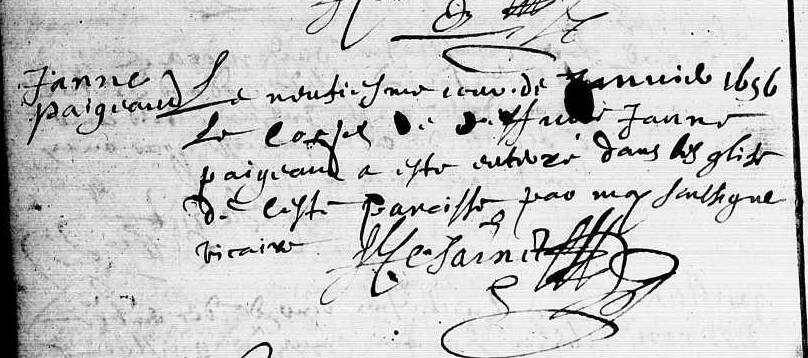 Janne
paigeaud
Le neufiesme jour de Janvier 1656
Le corps de deffunte Janne
paigeaud a esté enterré dans l'esglise
de ceste paroisse par moy soubsigne
vicaire